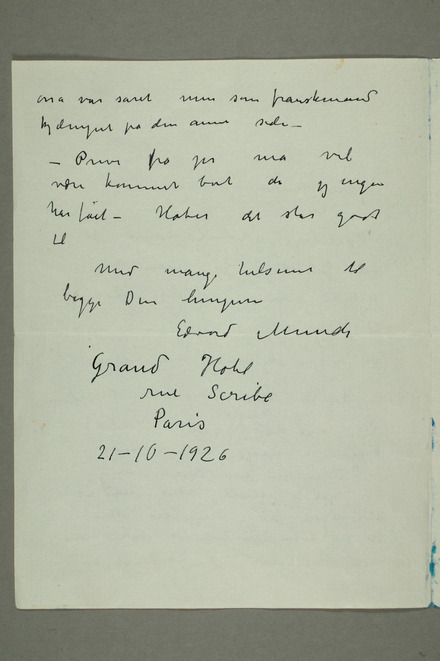 osa var såret men som franskmand
kjæmpet på den anne side –
– Brev fra jer må vel
være kommet bort da jeg ingen
har fåt – Håber det står godt
til
Med mange hilsener til
begge Din hengivne
Edvard Munch
Grand Hotel
rue Scribe
Paris
21-10-1926